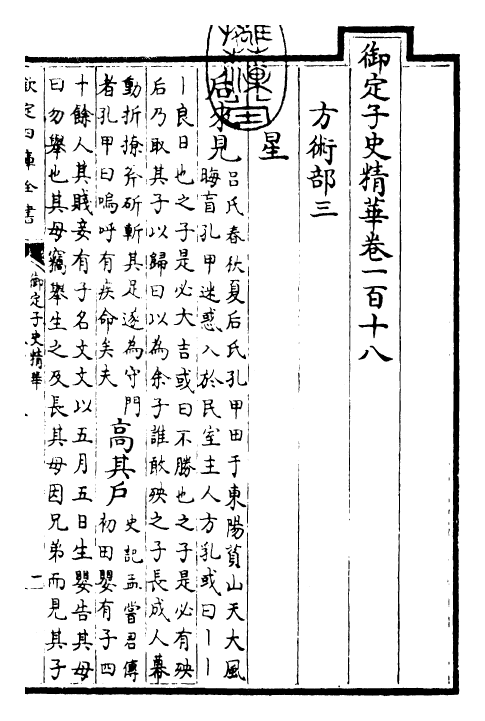 御定子史精華卷一百十八
方術部三
星
后來見
吕氏春秋夏后氏孔甲田于東陽萯山天大風
晦盲孔甲迷惑入於民室主人方乳或曰丨丨
丨良日也之子是必大吉或曰不勝也之子是必有殃
后乃取其子以歸曰以為余子誰敢殃之子長成人幕
動折撩斧斫斬其足遂為守門
者孔甲曰嗚呼有疾命矣夫
高其戶
史記孟嘗君傳
初田嬰有子四
十餘人其賤妾有子名文文以五月五日生嬰告其母
曰勿舉也其母竊舉生之及長其母因兄弟而見其子
欽定四庫全書
御定子史精華